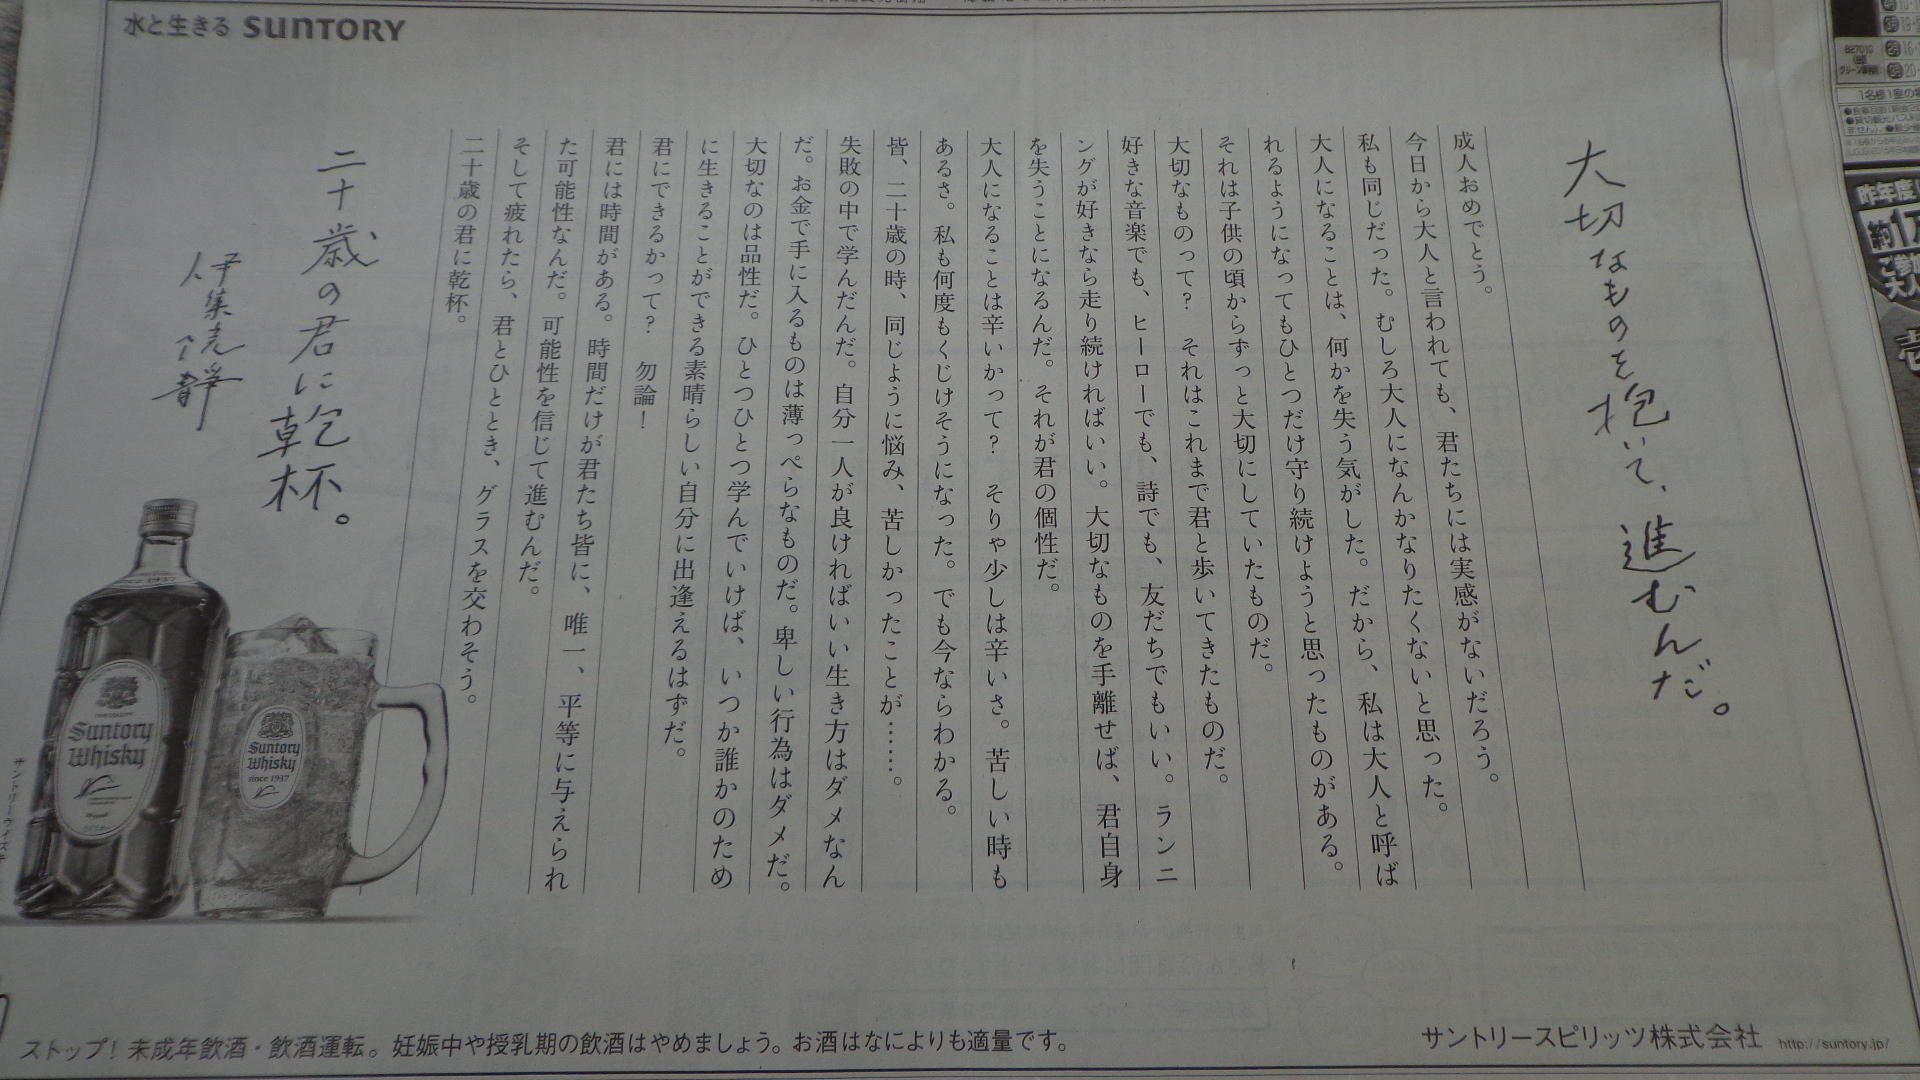 水と生きる SUNTORY
大切なものを抱いて、進むんだ。
成人おめでとう。
今日から大人と言われても、君たちには実感がないだろう。
私も同じだった。むしろ大人になんかなりたくないと思った。
大人になることは、何かを失う気がした。だから、私は大人と呼ば
れるようになってもひとつだけ守り続けようと思ったものがある。
それは子供の頃からずっと大切にしていたものだ。
大切なものって？　それはこれまで君と歩いてきたものだ。
好きな音楽でも、ヒーローでも、詩でも、友だちでもいい。ランニ
ングが好きなら走り続ければいい。大切なものを手離せば、君自身
を失うことになるんだ。それが君の個性だ。
大人になることは辛いかって？　そりゃ少しは辛いさ。苦しい時も
あるさ。私も何度もくじけそうになった。でも今ならわかる。
皆、二十歳の時、同じように悩み、苦しかったことが……。
失敗の中で学んだんだ。自分一人が良ければいい生き方はダメなん
だ。お金で手に入るものは薄っぺらなものだ。卑しい行為はダメだ。
大切なのは品性だ。ひとつひとつ学んでいけば、いつか誰かのため
に生きることができる素晴らしい自分に出逢えるはずだ。
君にできるかって？　勿論！
君には時間がある。時間だけが君たち皆に、唯一、平等に与えられ
た可能性なんだ。可能性を信じて進むんだ。
そして疲れたら、君とひととき、グラスを交わそう。
二十歳の君に乾杯。
二十歳の君に乾杯。
伊集院静
since 1937
Suntory
Whisky
Suntory
Whisky
since 1937
サントリーウイスキ
ストップ！未成年飲酒・飲酒運転。妊娠中や授乳期の飲酒はやめましょう。お酒はなによりも適量です。
サントリースピリッツ株式会社 http://suntory.jp/
昨年度
約1万
大人